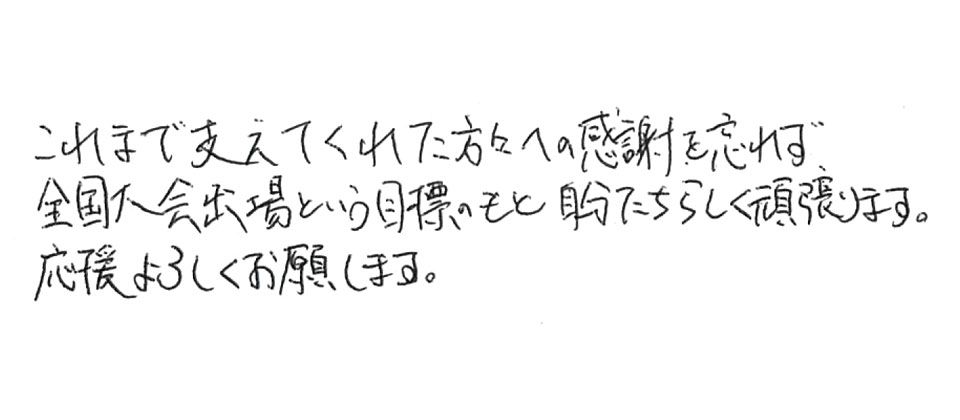 これまで支えてくれた方々への感謝を忘れず、
全国大会出場という目標のもと自分たちらしく頑張ります。
応援よろしくお願します。